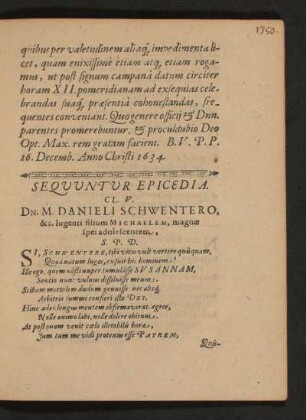 1350.
quibus per valetudinem aliaq́; impedimenta li-
cet, quam enixissimè etiam atq; etiam roga-
mus, ut post signum campanâ datum circiter
horam XII. pomeridianam ad exsequias cele-
brandas suaq́; præsentiâ cohonestandas, fre-
quentes conveniant. Quo genere officij & Dnn.
parentes promerebuntur, & proculdubio Deo
Opt. Max. rem gratam facient. B. V. P. P.
16. Decemb. Anno Christi 1634.
SEQUUNTUR EPICEDIA.
CL. V.
DN. M. DANIELI SCHWENTERO,
&c. lugenti filium MICHAELEM, magnæ
spei adolescentem,
S. P. D.
SI, SCHWENTERE, tibi vivo vult vertere quisquam,
Quod natum luges, exsuit hic hominem:
Ille ego, quem nôsti nuper tumulâsse SUSANNAM,
Sentio non: vulnus dissiluisse meum,
Scilicet mortalem dudum genuisse nec absq;
Arbitrio sumus conseri ista DEI.
Hinc adeò longum mentem obfirmaverat ægro,
Nolle animo labi, nolle dolere obitum.
At postquam venit cœlo illetabilis hora,
Jam tum me vidi protenus esse PATREM,
Quis-